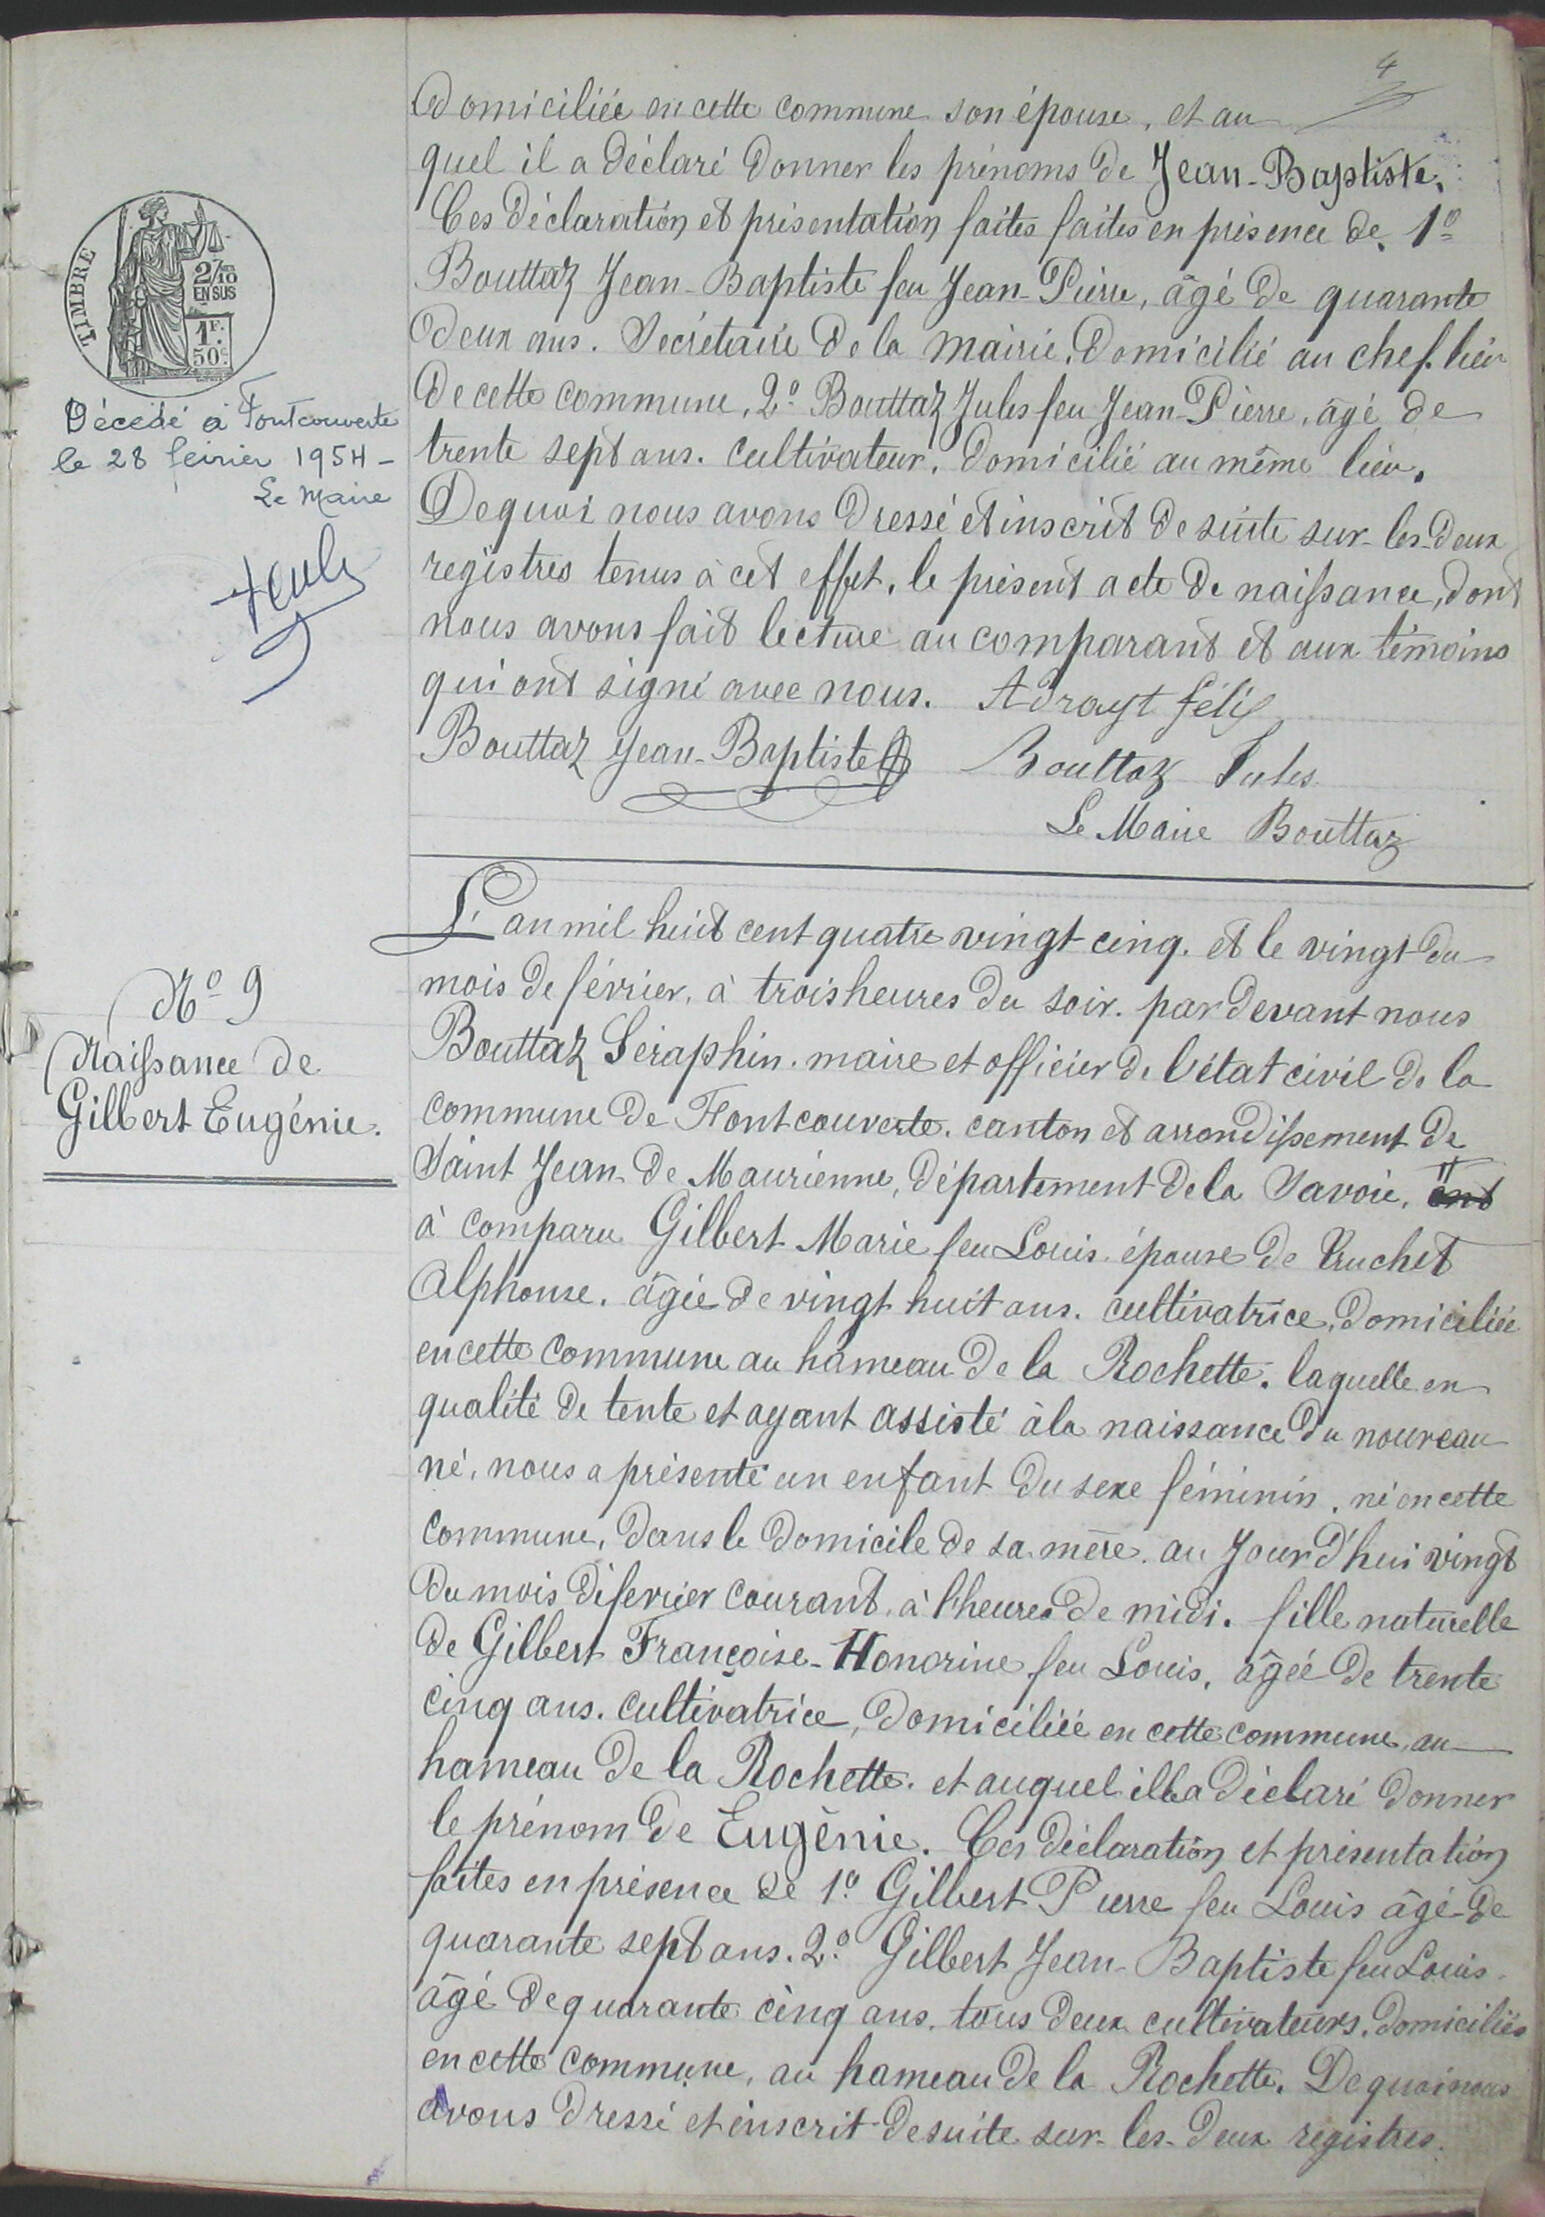 4
domiciliée en cette commune son épouse, et au
quel il a déclaré donner les prénoms de Jean-Baptiste.
Ces déclaration et présentation faites faites en présence de, 1º
Bouttaz Jean-Baptiste feu Jean-Pierre, âgé de quarante
deux ans. Secrétaire de la mairie, domicilié au chef-lieu
de cette commune, 2º Bouttaz Jules feu Jean-Pierre, âgé de
trente sept ans. cultivateur, domicilié au même lieu.
De quoi nous avons dressé et inscrit de suite sur-les-deux
registres tenus à cet effet, le présent acte de naissance, dont
nous avons fait lecture au comparant et aux témoins
qui ont signé avec nous. Adrayt félix
Bouttaz Jean-Baptiste Bouttaz Jules
Le Maire Bouttaz
TIMBRE
2/10
EN SUS
1F.
50c.
Décédé à Fontcouverte
le 28 février 1954 -
Le Maire
Nº 9
Naissance de
Gilbert Eugénie.
L'an mil huit cent quatre vingt cinq. et le vingt du
mois de février, à trois heures du soir. par devant nous
Bouttaz Séraphin. maire et officier de l'état civil de la
commune de Fontcouverte. canton et arrondissement de
Saint Jean-de Maurienne, département de la Savoie, ont
à comparu Gilbert Marie feu Louis. épouse de Truchet
Alphonse. âgée de vingt huit ans. cultivatrice, domiciliée
en cette commune au hameau de la Rochette. laquelle en
qualité de tente et ayant assisté à la naissance du nouveau
né, nous a présenté un enfant du sexe féminin, né en cette
commune, dans le domicile de sa mère. au jour d'hui vingt
du mois de fevrier courant. à l'heures de midi. fille naturelle
de Gilbert Françoise-Honorine feu Louis, âgée de trente
cinq ans. cultivatrice, domiciliée en cette commune, au
hameau de la Rochette. et auquel illa déclaré donner
le prénom de Eugénie. Ces déclaration et présentation
faites en présence de 1º Gilbert Pierre feu Louis âgé de
quarante sept ans. 2º Gilbert Jean-Baptiste feu Louis.
âgé de quarante cinq ans. tous deux cultivateurs. domiciliés
en cette commune, au hameau de la Rochette. De quoi nous
avons dressé et inscrit de suite sur-les-deux registres.